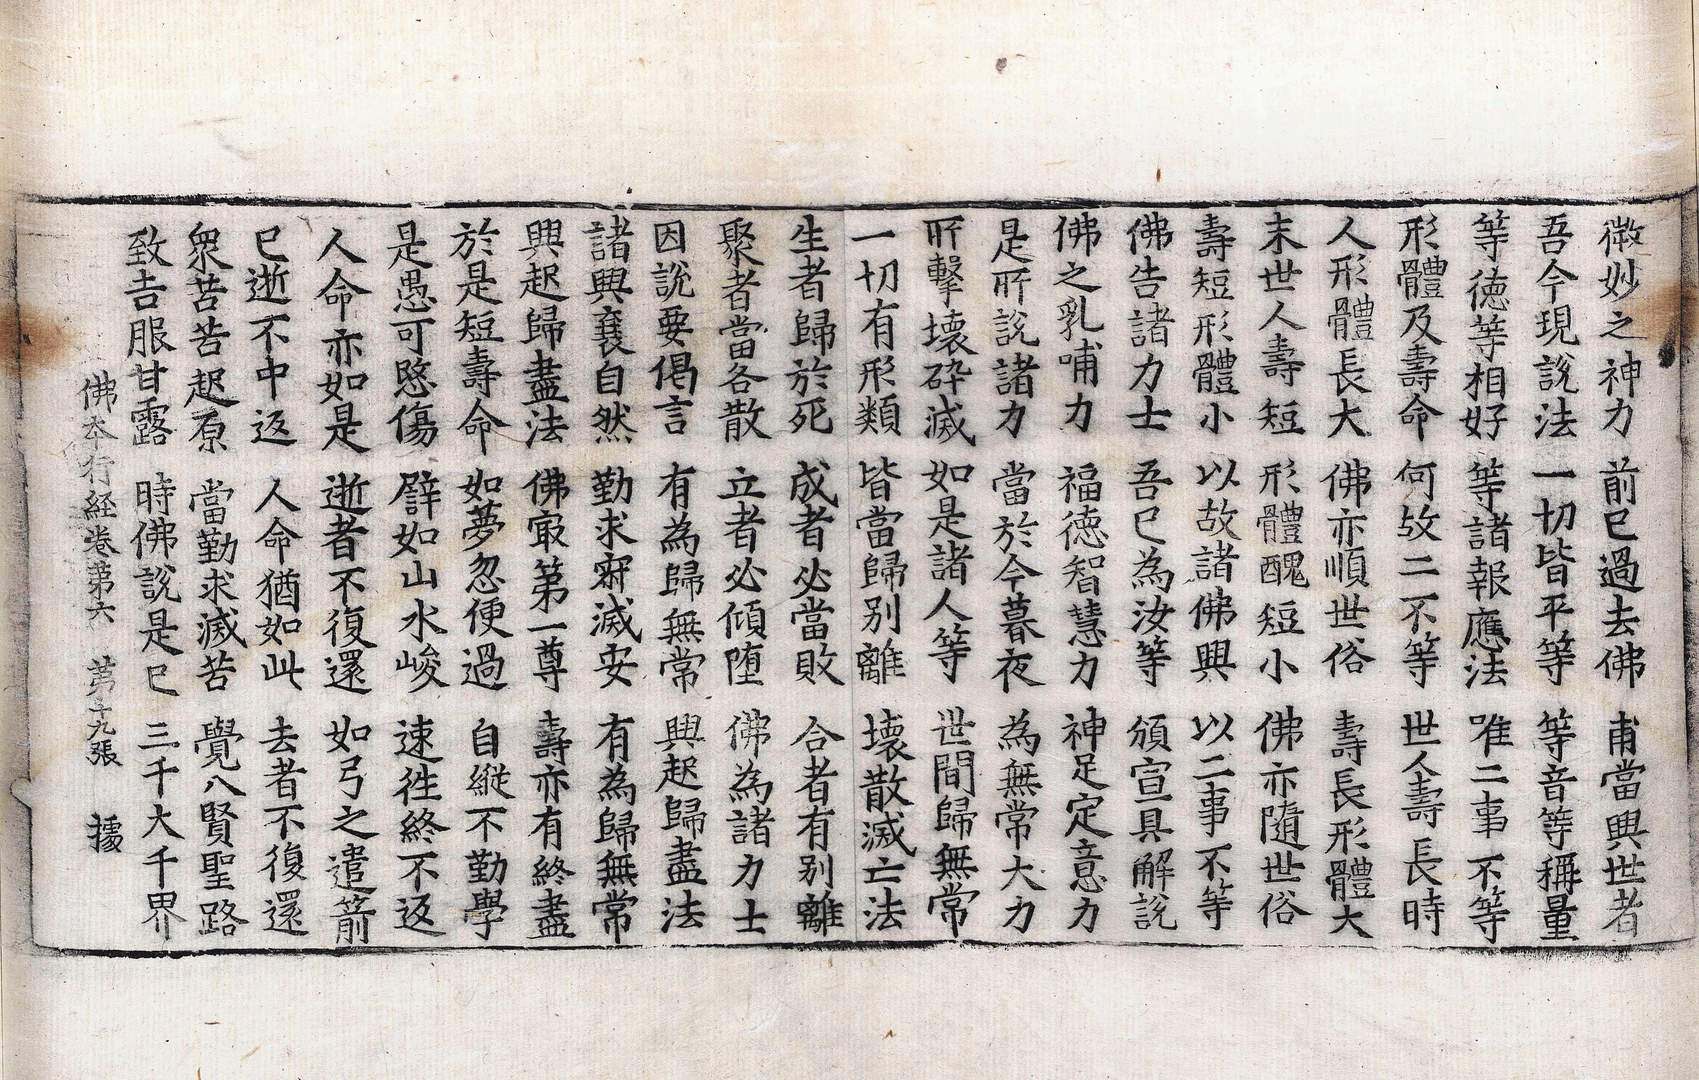 微妙之神力 前已過去佛 甫當興世者
吾今現說法 一切皆平等 等音等稱量
等德等相好 等諸報應法 唯二事不等
形體及壽命 何故二不等 世人壽長時
人形體長大 佛亦順世俗 壽長形體大
末世人壽短 形體醜短小 佛亦隨世俗
壽短形體小 以故諸佛興 以二事不等
佛告諸力士 吾已為汝等 頒宣具解說
佛之乳哺力 福德智慧力 神足定意力
是所說諸力 當於今暮夜 為無常大力
所擊壞碎滅 如是諸人等 世間歸無常
一切有形類 皆當歸別離 壞散滅亡法
生者歸於死 成者必當敗 合者有別離
聚者當各散 立者必傾墮 佛為諸力士
因說要偈言 有為歸無常 興起歸盡法
諸興衰自然 勤求寂滅安 有為歸無常
興起歸盡法 佛最第一尊 壽亦有終盡
於是短壽命 如夢忽便過 自縱不勤學
是愚可愍傷 譬如山水峻 速徃終不返
人命亦如是 逝者不復還 如弓之遣箭
已逝不中返 人命猶如此 去者不復還
衆苦苦起原 當勤求滅苦 覺八賢聖路
致吉服甘露 時佛說是已 三千大千界
佛本行経卷第六 第十九張 據